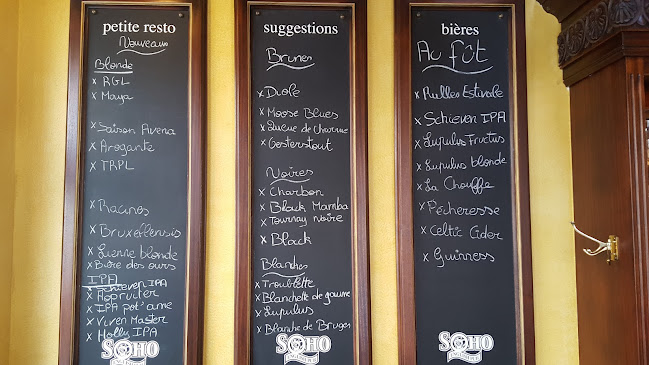 petite resto
Nouveau
Blonde
x RGL
x Maya
x Saison Avena
x Arogante
x TRPL
x Racines
x Bruxellensis
x Lienne blonde
x Bière des ours
IPA
x Schieven IPA
x Hopruiter
x IPA pot'ame
x Viven Master
x Holly IPA
SOHO
suggestions
Brunes
x Diole
x Moose Blues
x Queue de charrue
x Oesterstout
Noires
x Charbon
x Black Mamba
x Tournay noire
x Black
Blanches
x Troublette
x Blanchette de gaume
x Lupulus
x Blanche de Bruges
SOHO
bières
Au fût
x Rulles Estivale
x Schieven IPA
x Lupulus Fructus
x Lupulus blonde
x La Chouffe
x Pécheresse
x Celtic Cider
x Guinness
SOHO